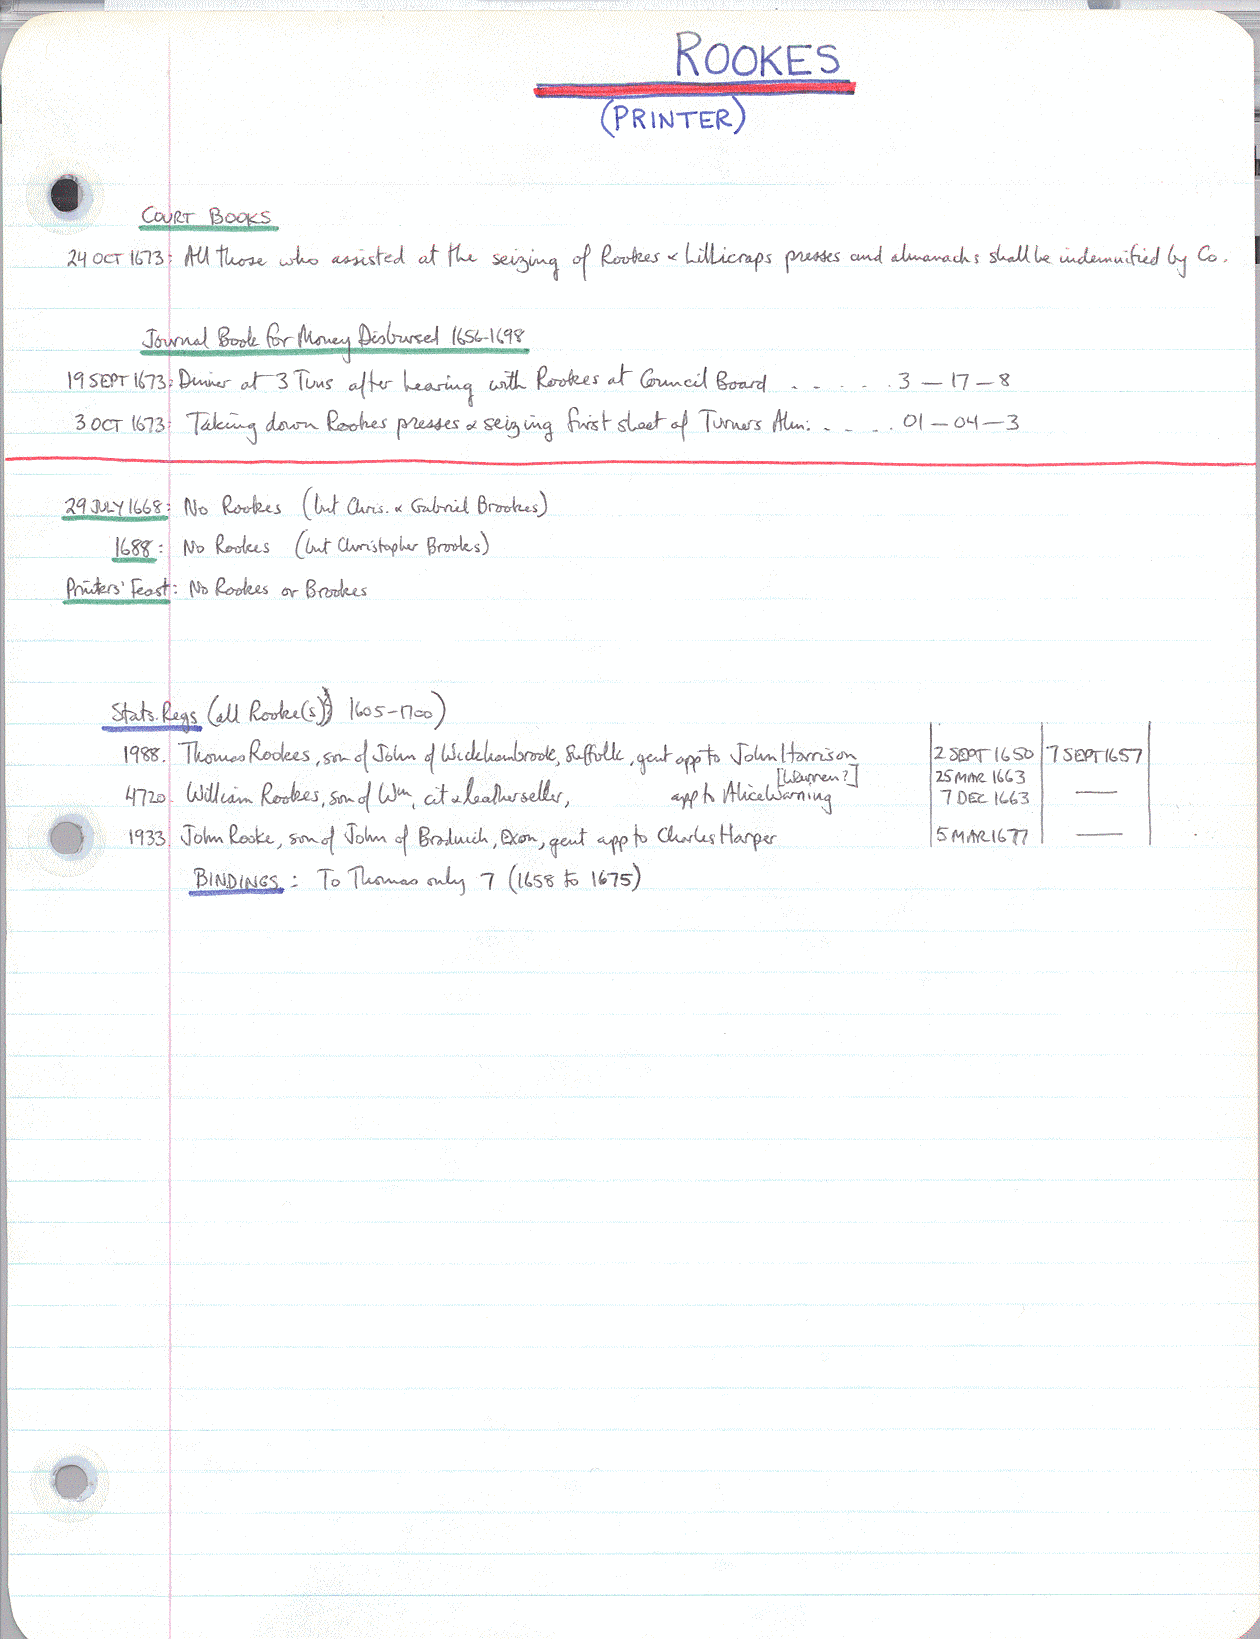 ROOKES
(PRINTER)
COURT BOOKS
24 OCT 1673: All those who assisted at the seizing of Rookes & Lillicraps presses and almanachs shall be indemnified by Co.
Journal Book for Money Disbursed 1656-1698
19 SEPT 1673: Dinner at 3 Tuns after hearing with Rookes at Council Board . . . . . . 3 — 17 — 8
3 OCT 1673: Taking down Rookes presses & seizing first sheet of Turners Alm: . . . . 01 — 04 — 3
29 JULY 1668: No Rookes (but Chris. & Gabriel Brookes)
1688: No Rookes (but Christopher Brookes)
Printers' Feast: No Rookes or Brookes
Stats. Regs (all Rooke(s) 1605-1700)
1988. Thomas Rookes, son of John of Wickhambrook, Suffolk, gent app to John Harrison 2 SEPT 1650 7 SEPT 1657
[Warren?] 25 MAR 1663
4720. William Rookes, son of Wm, cit & leatherseller, app to Alice Warning 7 DEC 1663 —
1933. John Rooke, son of John of Bradwich, Exon, gent app to Charles Harper 5 MAR 1677 —
BINDINGS: To Thomas only 7 (1658 to 1675)